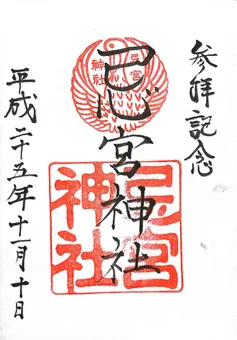 参拝記念
忌宮神社
平成二十五年十一月十日
忌宮
神社
忌宮
神社